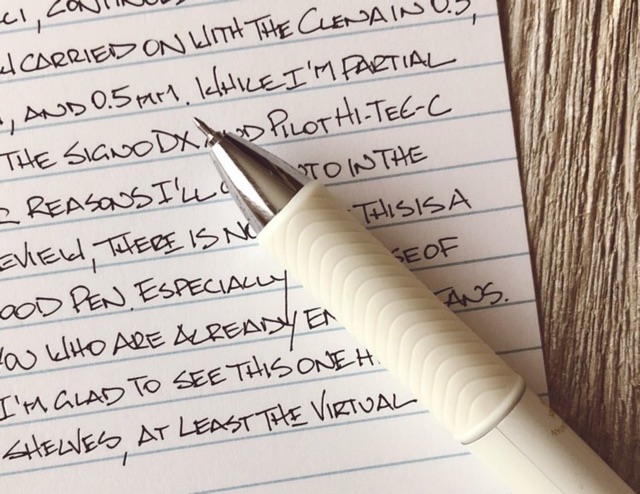 CARRIED ON WITH THE CLENA IN 0.3,
, AND 0.5MM. WHILE I'M PARTIAL
THE SIGNO DX AND PILOT HI-TEC-C
REASONS I'LL TO IN THE
, THERE IS THIS IS A
PEN. ESPECIALLY OF
WHO ARE ALREADY
I'M GLAD TO SEE THIS ONE
SHELVES, AT LEAST THE VIRTUAL